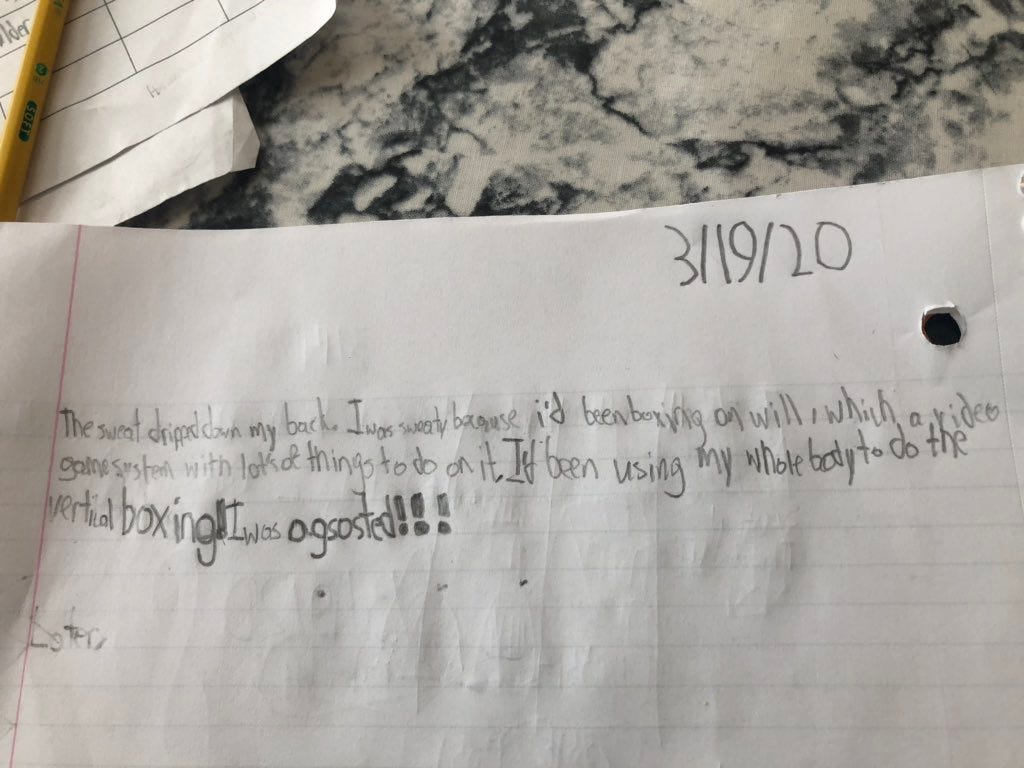 3/19/20
The sweat dripped down my back. I was sweaty because i'd been boxing on will, which a video
game system with lots of things to do on it. I'd been using my whole body to do the
vertical boxing! I was ogsosted!!!